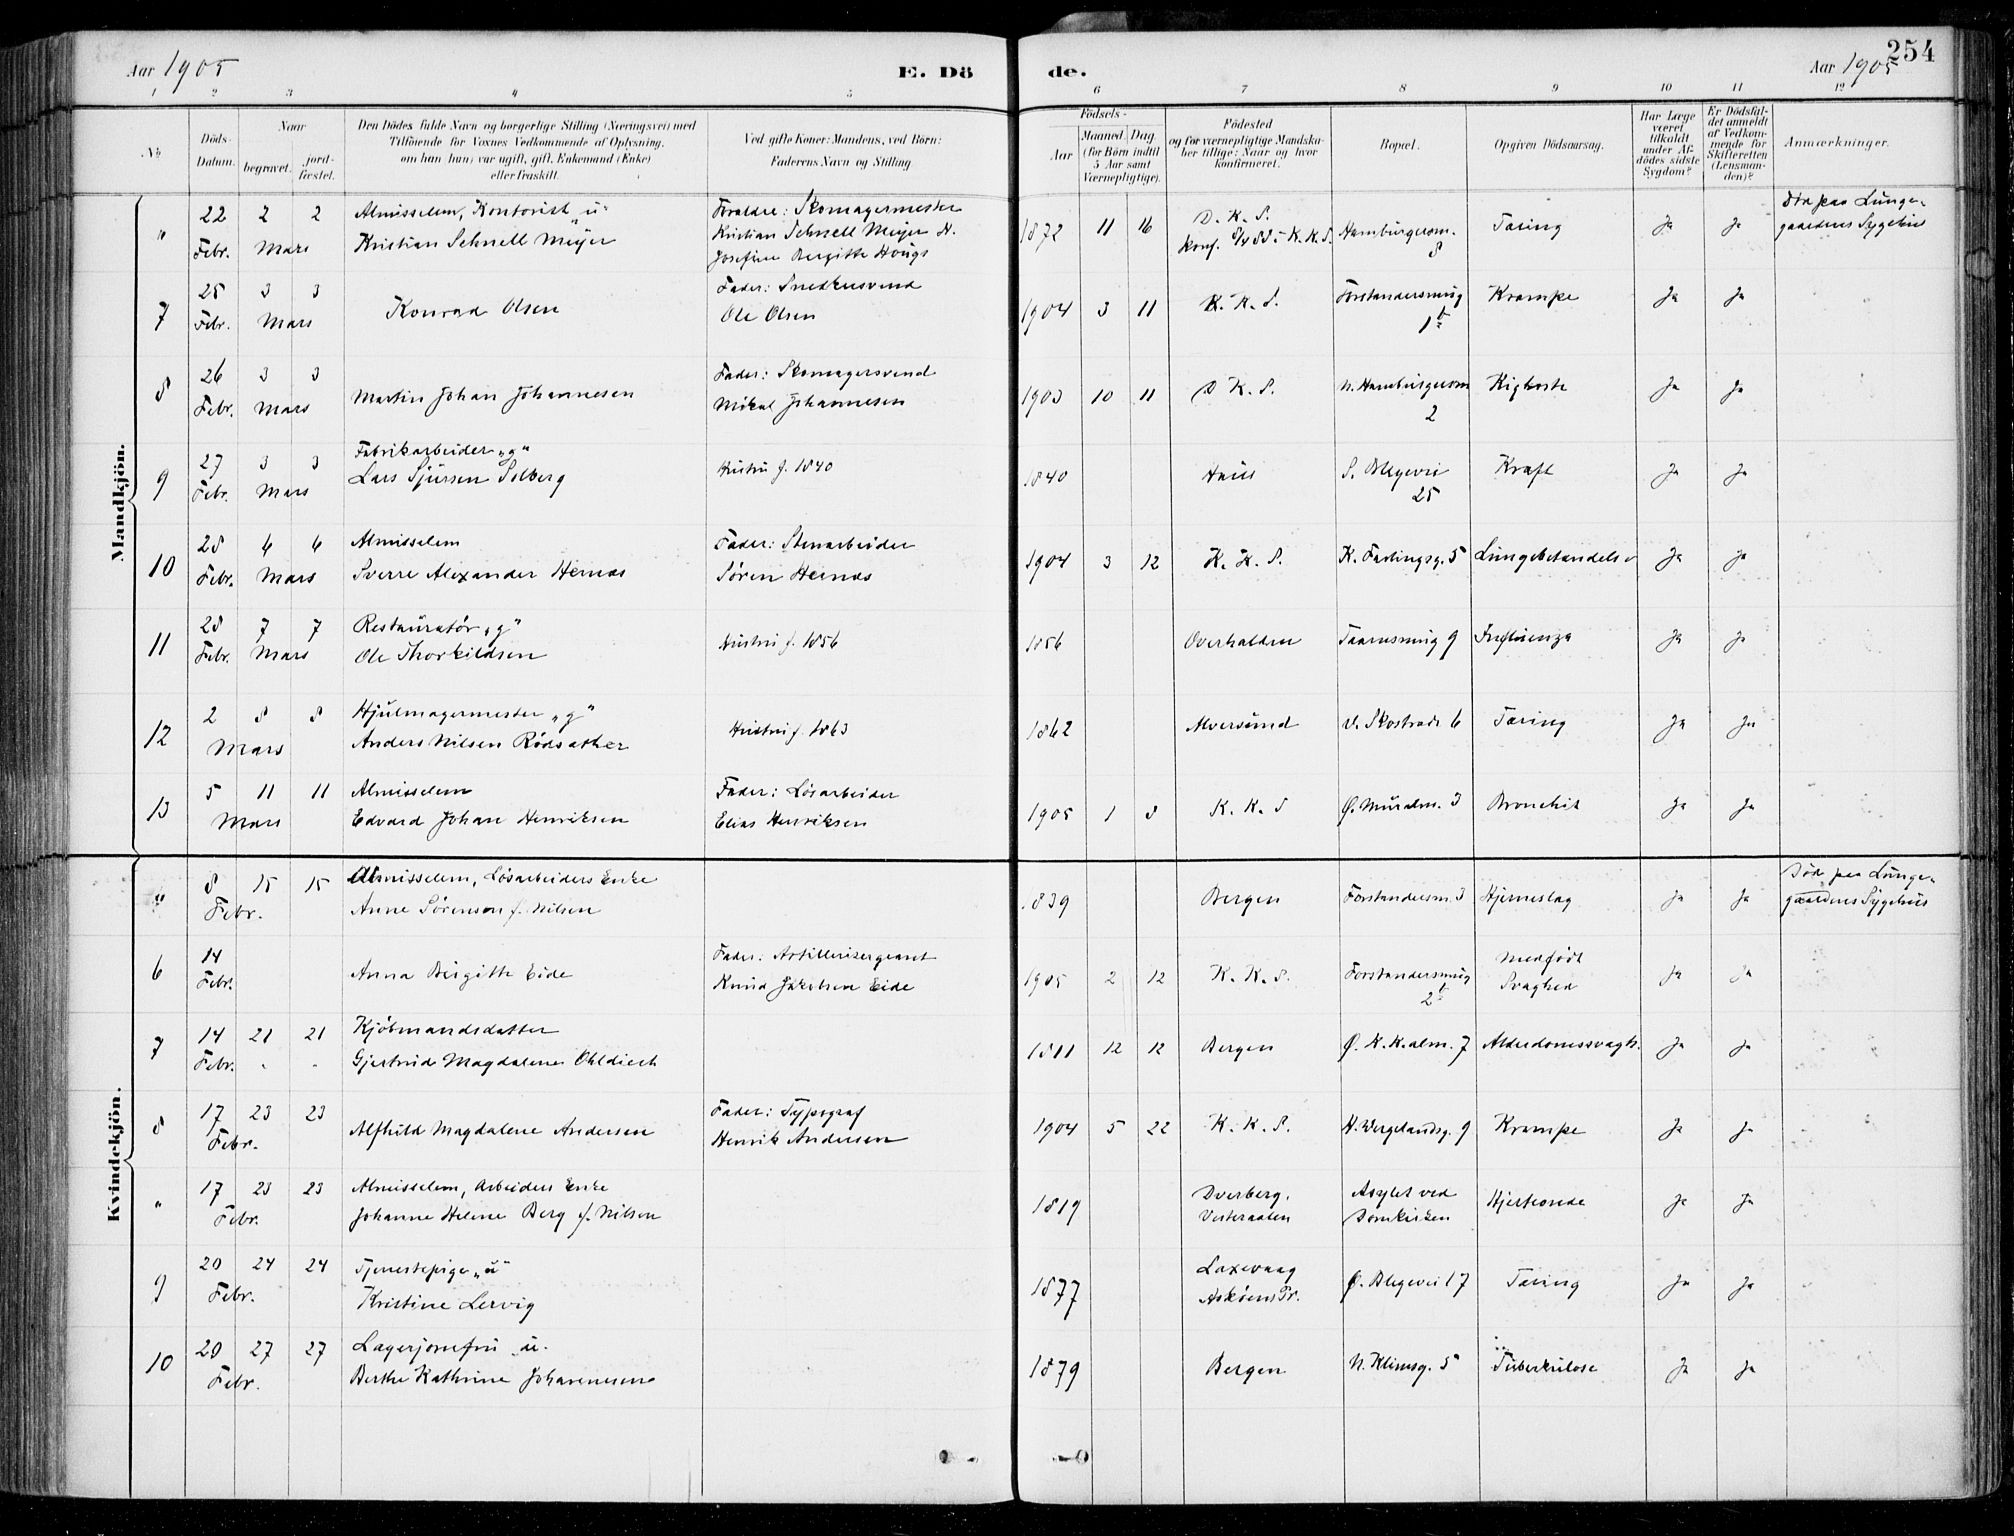 254
Aar 1905 E. Dö de. Aar 1905
1 2 3 4 5 6 7 8 9 10 11 12
№ Döds-Datum. Naar begravet. jord-fæstet. Den Dödes fulde Navn og borgerlige Stilling (Næringsvei) med Tilföiende for Voxnes Vedkommende af Oplysning, om han (hun) var ugift, gift, Enkemand (Enke) eller fraskilt. Ved gifte Koner: Mandens, ved Börn: Faderens Navn og Stilling. Födsels- Aar Maaned. Dag. (for Börn indtil 5 Aar samt Værnepligtige). Födested og for værnepligtige Mandskaber tillige: Naar og hvor konfirmeret. Bopæl. Opgiven Dödsaarsag. Har Læge været tilkaldt under Afdödes sidste Sygdom? Er Dödsfaldet anmeldt af Vedkommende for Skifteretten (Lensmanden)? Anmærkninger.
Mandkjön.
" 22 2 2 Almisselem, Kontorist „u" Foraldre: Skomagermester 1872 11 16 D. K. S. Hamburgersm. Tæring Ja Ja Død paa Lunge-
Febr. Mars Kristian Schnell Meyer Kristian Schnell Meijer H. konf. 8/4 88 i K. K. S. 8 gaardens Sygehus
Josefine Bergitte Hougs
7 25 3 3 Konrad Olsen Fader: Snedkersvend 1904 3 11 K. K. S. Forstandersmug Krampe Ja Ja
Febr. Mars Ole Olsen 1b
8 26 3 3 Martin Johan Johannesen Fader: Skomagersvend 1903 10 11 D K. S. N. Hamburgersm Kighoste Ja Ja
Febr. Mars Mikal Johannesen 2
9 27 3 3 Fabrikarbeider „g" Hustru f. 1840 1840 Haus S. Blegevei Kræft Ja Ja
Febr. Mars Lars Sjursen Solberg 25
10 28 6 6 Almisselem Fader: Stenarbeider 1904 3 12 K. K. S. K. Fastingsg. 5 Lungebetændelse Ja Ja
Febr. Mars Sverre Alexander Hernæs Søren Hernæs
11 28 7 7 Restauratør „g" Hustru f. 1856 1856 Overhalden Taarnsmug 9 Influenza Ja Ja
Febr. Mars Ole Thorkildsen
12 2 8 8 Hjulmagermester „g" Hustru f. 1863 1862 Alversund V. Skostræde 6 Tæring Ja Ja
Mars Anders Nilsen Rødsæther
13 5 11 11 Almisselem Fader: Løsarbeider 1905 1 8 K. K. S Ø. Muralm. 3 Bronchit Ja Ja
Mars Edvard Johan Henriksen Elias Henriksen
Kvindekjön.
" 8 15 15 Almisselem, Løsarbeiders Enke 1839 Bergen Forstandersm. 3 Hjerneslag Ja Ja Død paa Lunge-
Febr. Anne Sørenson f. Nilsen gaardens Sygehus
6 14 Anna Birgitte Eide Fader: Artillerisergeant 1905 2 12 K. K. S. Forstandersmug Medfødt Ja Ja
Febr. Knud Jakobsen Eide 2b Svaghed
7 14 21 21 Kjöbmandsdatter 1811 12 12 Bergen Ø. K. K. alm. 7 Alderdomssvagh. Ja Ja
Febr. " " Gjertrud Magdalene Ohldieck
8 17 23 23 Alfhild Magdalene Andersen Fader: Typograf 1904 5 22 K. K. S. H. Wergelandsg. 9 Krampe Ja Ja
Febr. Henrik Andersen
" 17 23 23 Almisselem, Arbeiders Enke 1819 Dverberg, Asylet ved Hjerteonde Ja Ja
Febr. Johanne Helene Berg f. Nilsen Vesteraalen Domkirken
9 20 24 24 Tjenestepige „u" 1877 Laxevaag Ø. Blegevei 17 Tæring Ja Ja
Febr. Kristine Lervig Askøens Pr.
10 20 27 27 Lagerjomfru „u. 1879 Bergen N. Klimsg. 5 Tuberkulose Ja Ja
Febr. Berthe Kathrine Johannesen